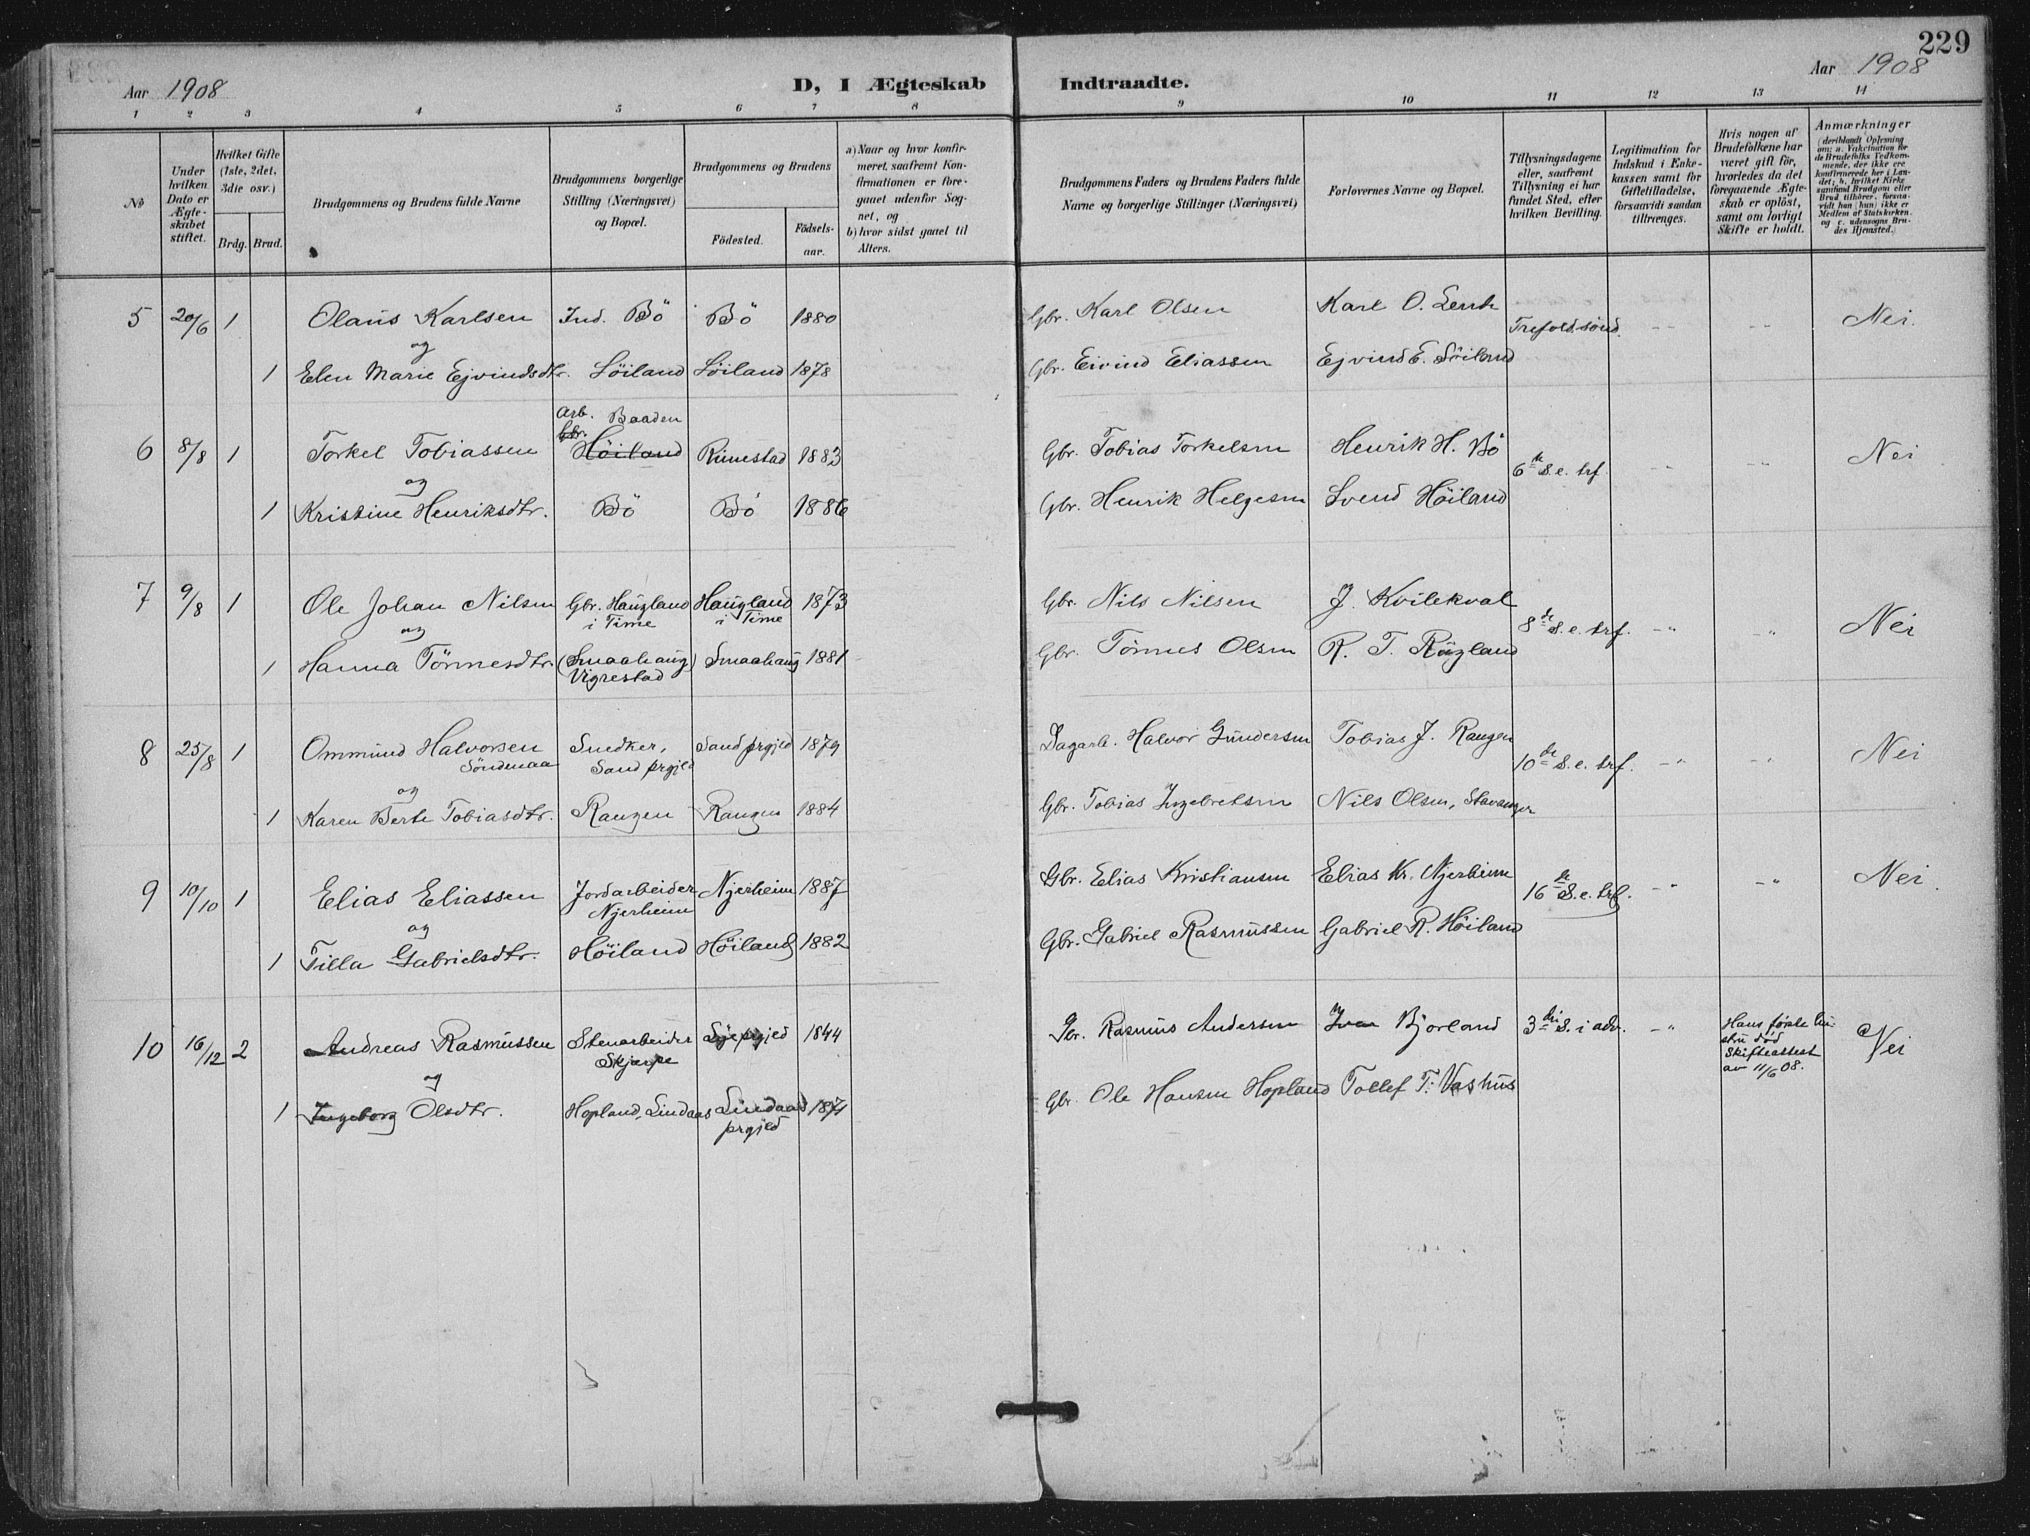 229
Aar 1908
D, I Ægteskab Indtraadte.
Aar 1908
1 2 3 4 5 6 7 8 9 10 11 12 13 14
No
Under hvilken Dato er Ægteskabet stiftet.
Hvilket Gifte (1ste, 2det, 3die osv.)
Brdg. Brud.
Brudgommens og Brudens fulde Navne
Brudgommens borgerlige Stilling (Næringsvei) og Bopæl.
Brudgommens og Brudens
Fødested.
Fødselsaar.
a) Naar og hvor konfirmeret, saafremt Konfirmationen er foregaaet udenfor Sognet, og
b) hvor sidst gaaet til Alters.
Brudgommens Faders og Brudens Faders fulde Navne og borgerlige Stillinger (Næringsvei)
Forlovernes Navne og Bopæl.
Tillysningsdagene eller, saafremt Tillysning ei har fundet Sted, efter hvilken Bevilling.
Legitimation for Indskud i Enkekassen samt for Giftetilladelse, forsaavidt saadan tiltrænges.
Hvis nogen af Brudefolkene har været gift før, hvorledes da det foregaaende Ægteskab er opløst, samt om lovligt Skifte er holdt.
Anmærkninger (deriblandt Oplysning om: a. Vakcination for de Brudefolks Vedkommende, der ikke ere konfirmerede her i Landet; b. hvilket Kirkesamfund Brudgom eller Brud tilhører, forsaavidt han (hun) ikke er Medlem af Statskirken, og c. udensogns Brudes Hjemsted.)
5 20/6 1 Olaus Karlsen Ind. Bö Bö 1880 Gbr. Karl Olsen Karl O. Trefold. sönd. -"- -"- Nei.
og
1 Elen Marie Ejvindsdtr. Löiland Löiland 1878 Gbr. Eivind Eliassen Ejvind E. Löiland
Arb. Baaden
6 8/8 1 Torkel Tobiassen Gbr. Höiland Rimestad 1883 Gbr. Tobias Torkelsen Henrik H. Bö 6te S. e. trf. -"- -"- Nei
og
1 Kristine Henriksdtr. Bö Bö 1886 Gbr. Henrik Helgesen Svend Höiland
7 9/8 1 Ole Johan Nilsen Gbr. Haugland i Time Haugland i Time 1873 Gbr. Nils Nilsen J. Kvilekval 8de S. e. trf. -"- -"- Nei
og
1 Hanna Törnesdtr. (Smaahaug) Vigrestad Smaahaug 1881 Gbr. Törnes Olsen R. T. Rügland
8 25/8 1 Ommund Halvorsen Söndenaa Snedker, Sand prgjeld Sand prgjeld 1879 Dagarb. Halvor Gundersen Tobias J. Raugen 10de S. e. trf. -"- -"- Nei
og
1 Karen Berte Tobiasdtr. Raugen Raugen 1884 Gbr. Tobias Ingebretsen Nils Olsen, Stavanger
9 10/10 1 Elias Eliassen Jordarbeider Njerheim Njerheim 1887 Gbr. Elias Kristiansen Elias Kr. Njerheim 16de S. e. trf. -"- -"- Nei.
og
1 Tilla Gabrielsdtr. Höiland Höiland 1882 Gbr. Gabriel Rasmussen Gabriel R. Höiland
10 16/12 2 Andreas Rasmussen Stenarbeider Skjerpe prgjeld 1844 Gbr. Rasmus Andersen Bjorland 3die S. i adv. -"- Hans første hustru død Skifteattest av 11/6 08. Nei
og
1 Ingeborg Olsdtr. Hopland, Lindaas Lindaas prgjeld 1874 Gbr. Ole Hansen Hopland Tollef T. Vashus